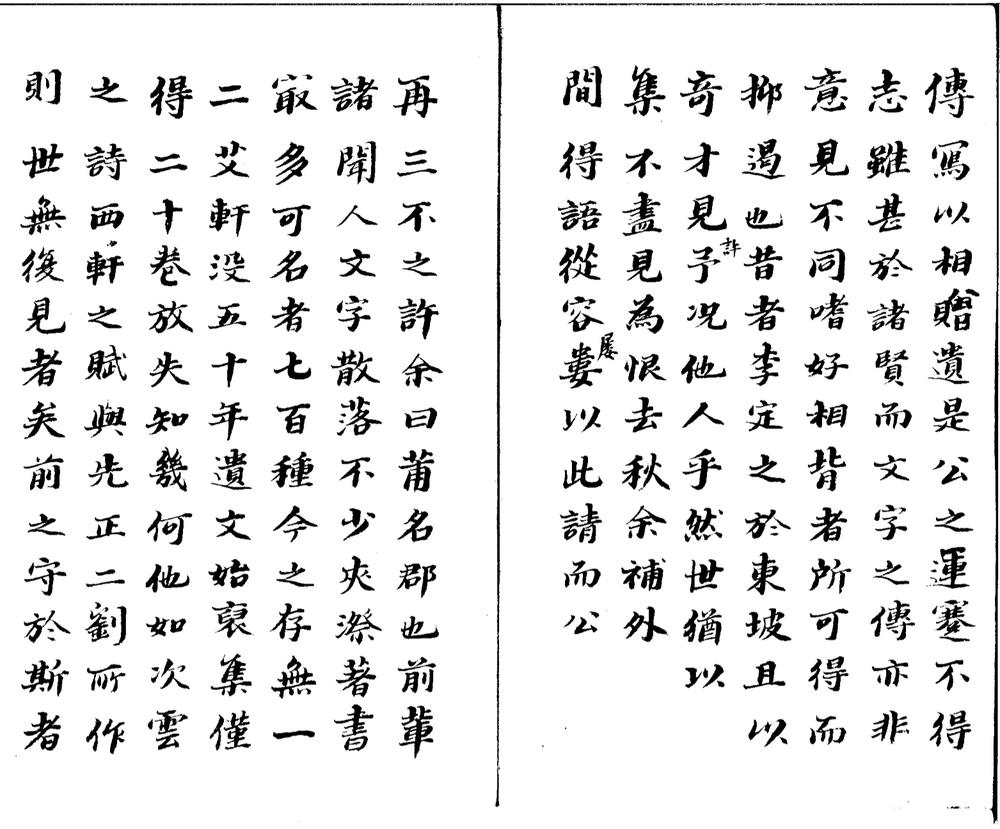 傳寫以相贈遺是公之運蹇不得
志雖甚於諸賢而文字之傳亦非
意見不同嗜好相背者所可得而
抑遏也昔者李定之於東坡且以
奇才見許予况他人乎然世猶以
集不盡見為恨去秋余補外
間得語從容屢婁以此請而公
再三不之許余曰莆名郡也前輩
諸聞人文字散落不少夾漈著書
㝡多可名者七百種今之存無一
二艾軒没五十年遺文始裒集僅
得二十卷放失知幾何他如次雲
之詩西軒之賦與先正二劉所作
則世無復見者矣前之守於斯者